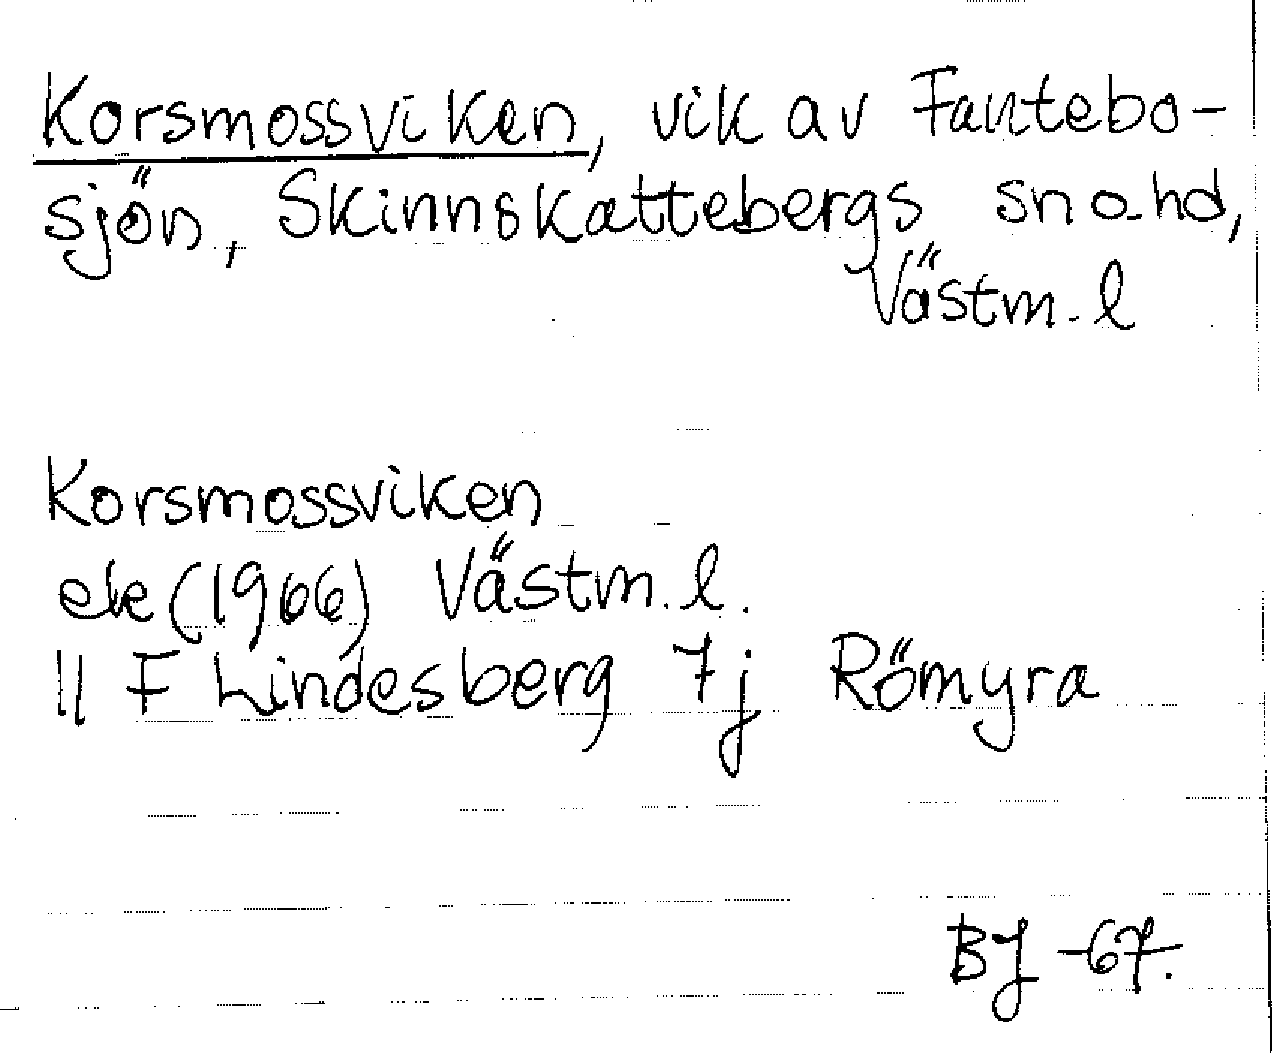 Korsmossviken, vik av Fantebo-
sjön, Skinnskattebergs sn o. hd,
Västm. l
Korsmossviken
ek (1966) Västm. l.
11 F Lindesberg 7j Römyra
BJ -67.